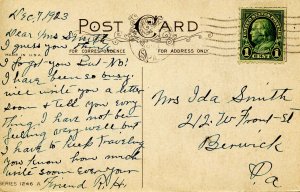 Dec, 7, 1923
POST CARD
FOR CORRESPONDENCE
FOR ADDRESS ONLY
Dear Mrs Smith
I guess you think
I forgot you But No!
I have been so busy
will write you a letter
soon & tell you every
thing. I have not been
feeling very well but
I have to keep traveling
You know how much
will soon Ever your
Friend R.H.
SERIES 1246 A
1 CENT 1
Mrs Ida Smith
212 W Front St
Berwick
Pa